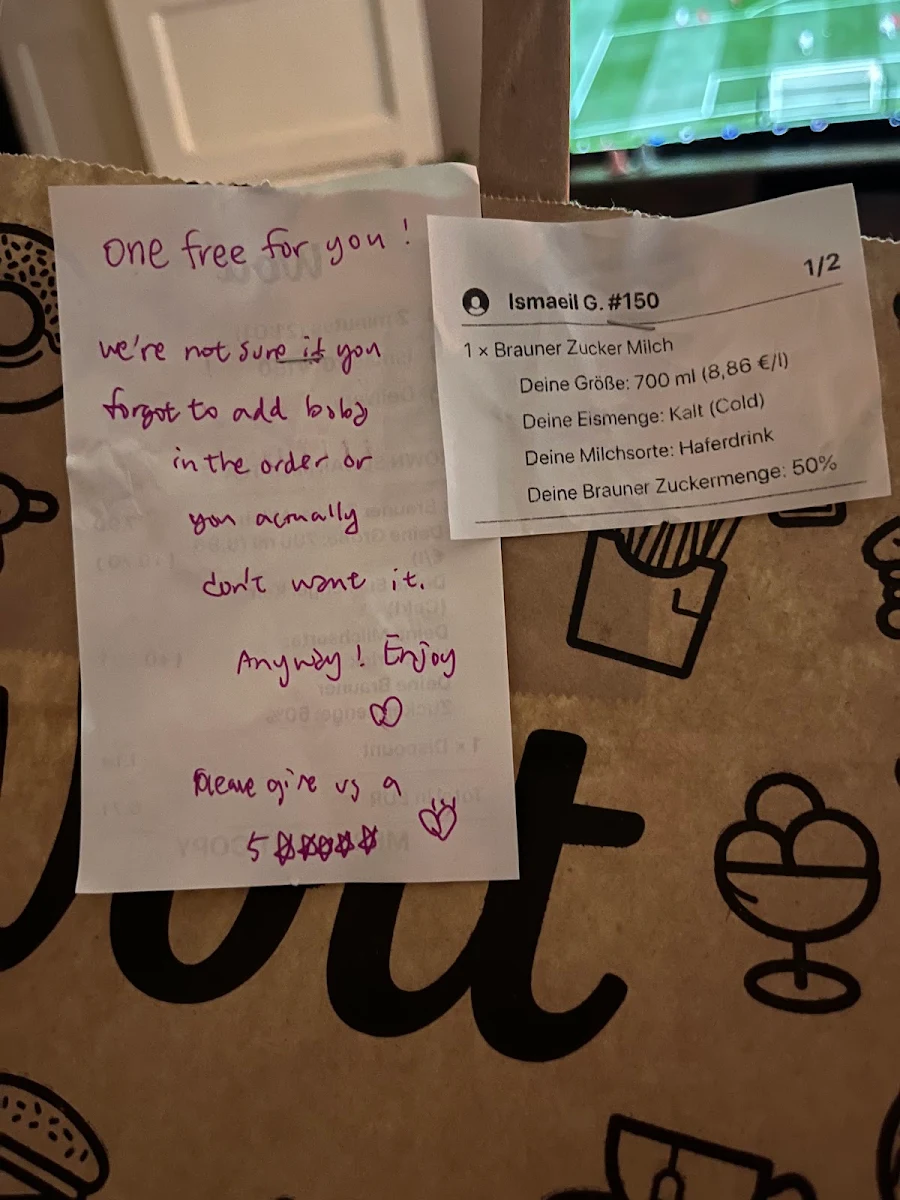 one free for you !
we're not sure if you
forgot to add boba
in the order or
you actually
don't want it.
Anyway! Enjoy
Please give us a
5
1/2
Ismaeil G. #150
1 × Brauner Zucker Milch
Deine Größe: 700 ml (8,86 €/l)
Deine Eismenge: Kalt (Cold)
Deine Milchsorte: Haferdrink
Deine Brauner Zuckermenge: 50%